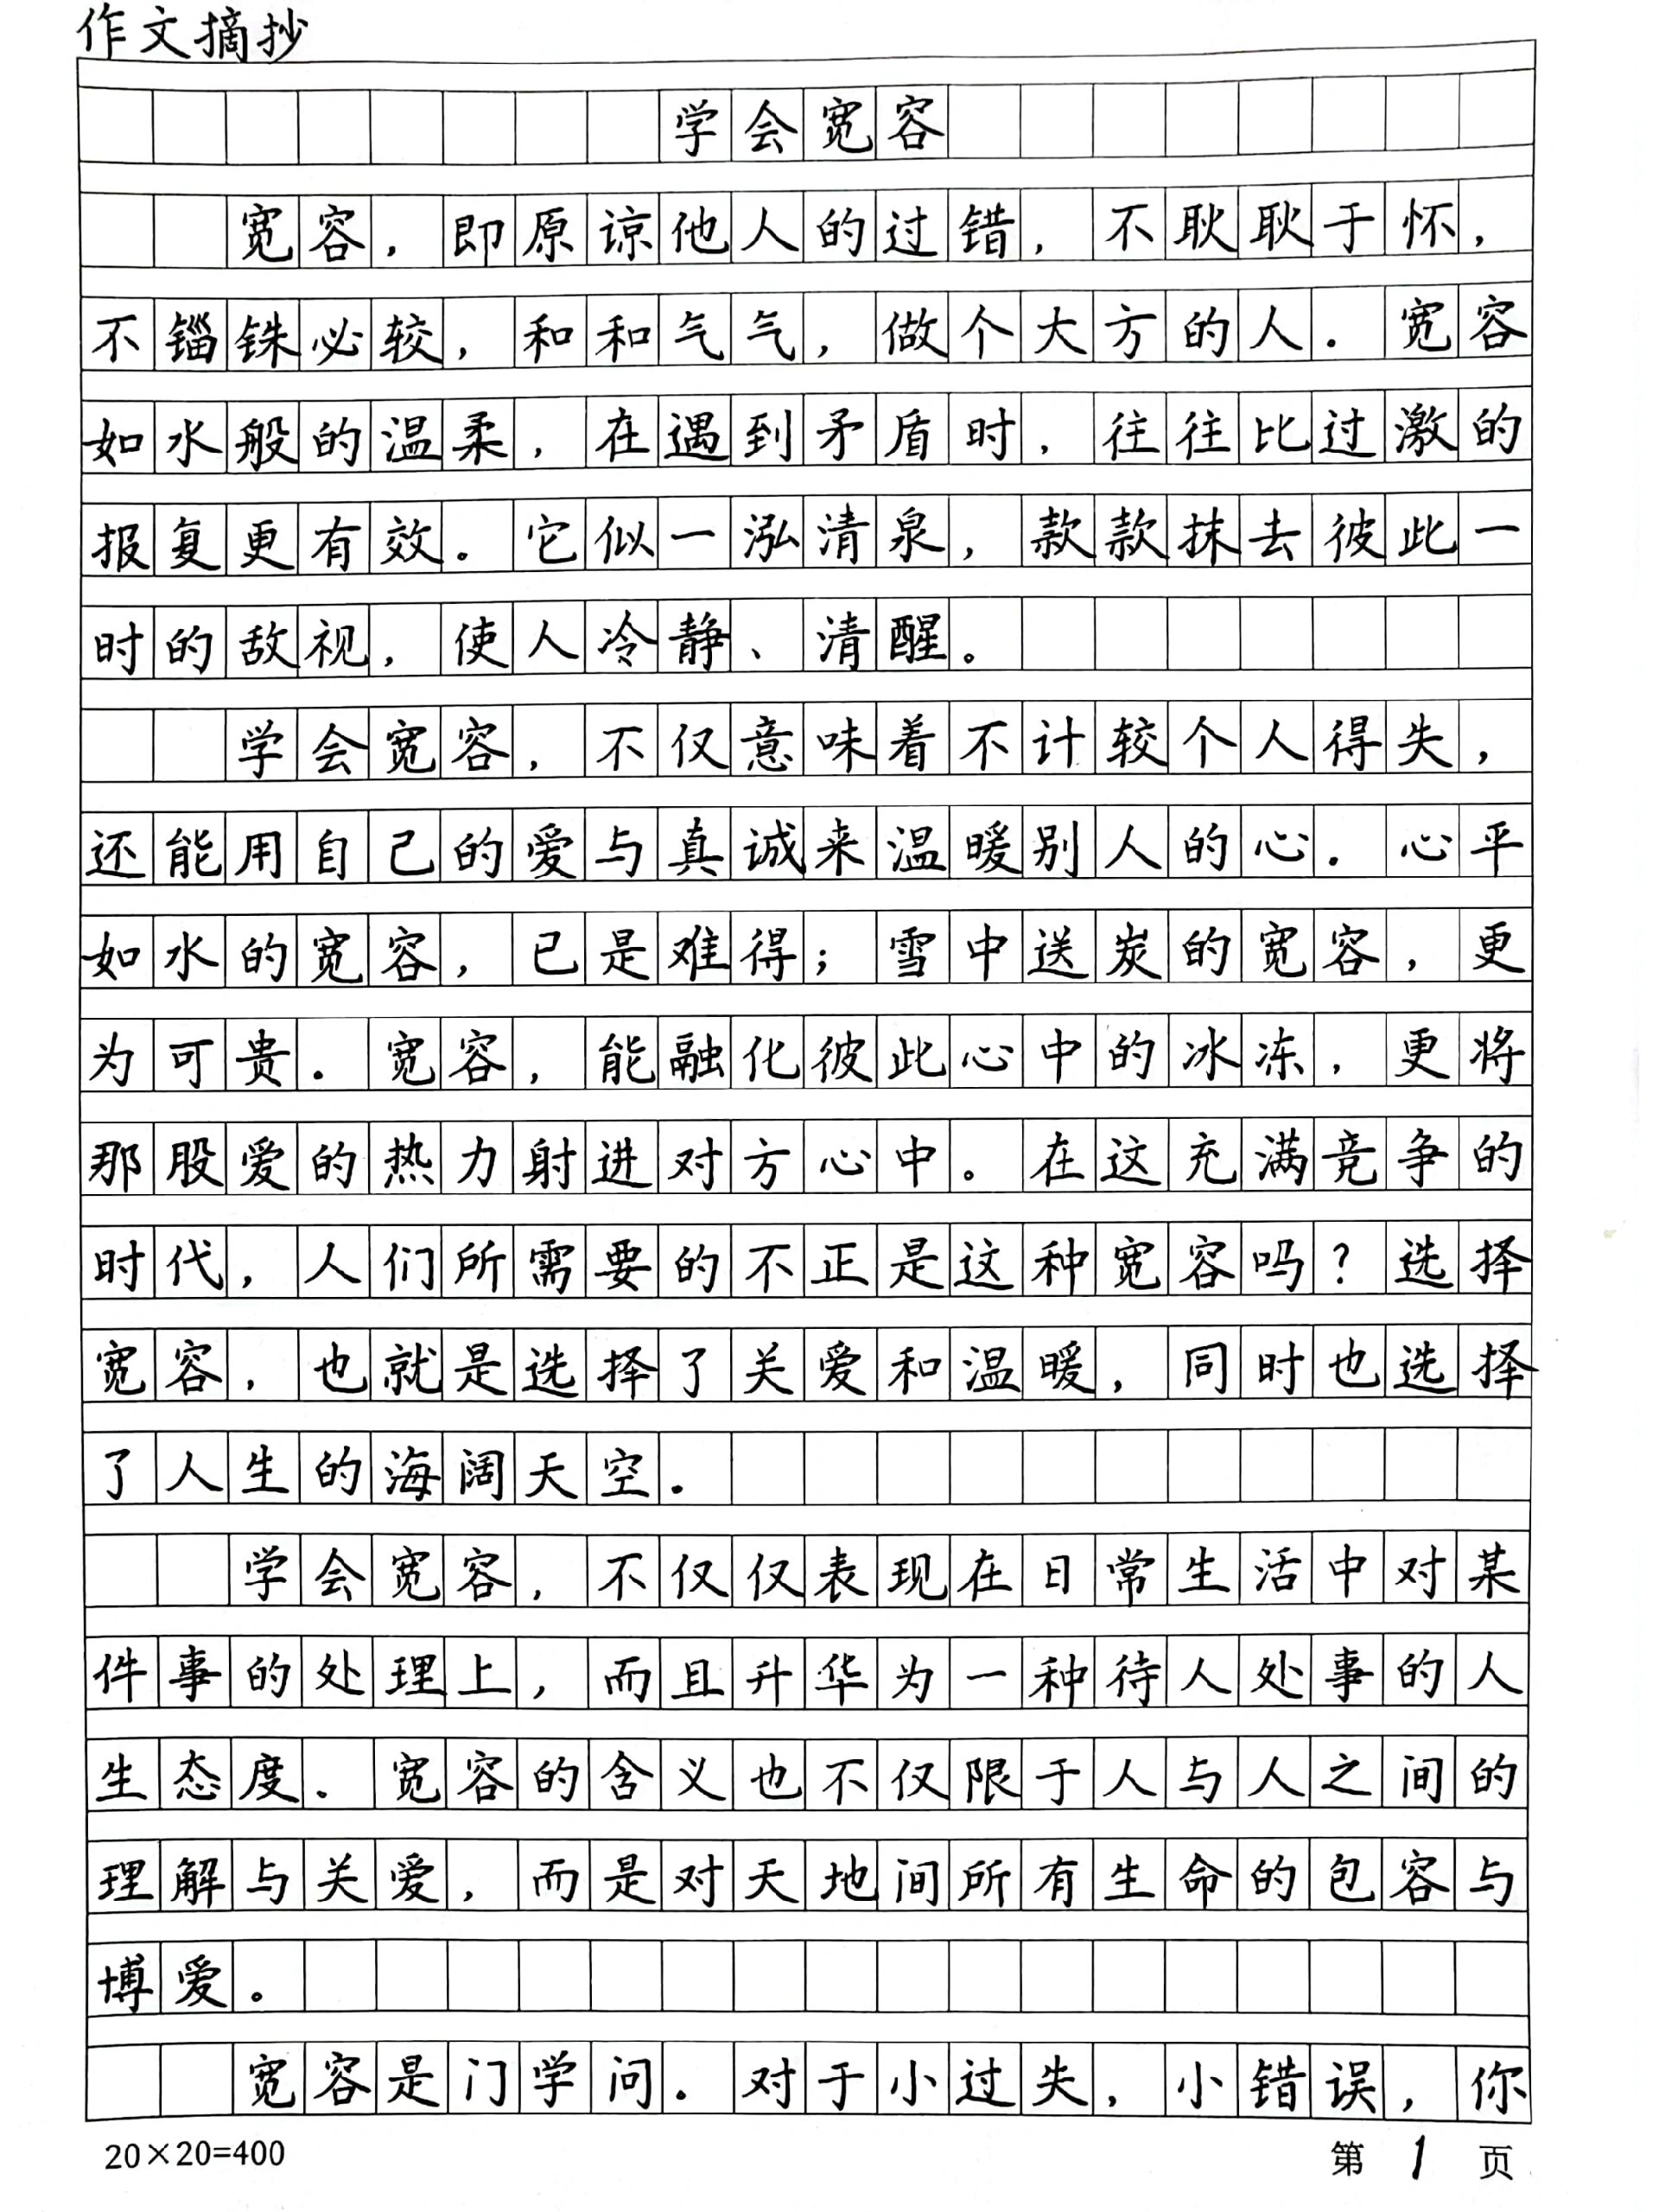 作文摘抄
学会宽容
宽容，即原谅他人的过错，不耿耿于怀，
不锱铢必较，和和气气，做个大方的人．宽容
如水般的温柔，在遇到矛盾时，往往比过激的
报复更有效。它似一泓清泉，款款抹去彼此一
时的敌视，使人冷静、清醒。
学会宽容，不仅意味着不计较个人得失，
还能用自己的爱与真诚来温暖别人的心．心平
如水的宽容，已是难得；雪中送炭的宽容，更
为可贵．宽容，能融化彼此心中的冰冻，更将
那股爱的热力射进对方心中。在这充满竞争的
时代，人们所需要的不正是这种宽容吗？选择
宽容，也就是选择了关爱和温暖，同时也选择
了人生的海阔天空．
学会宽容，不仅仅表现在日常生活中对某
件事的处理上，而且升华为一种待人处事的人
生态度．宽容的含义也不仅限于人与人之间的
理解与关爱，而是对天地间所有生命的包容与
博爱。
宽容是门学问．对于小过失，小错误，你
20×20=400 第 1 页